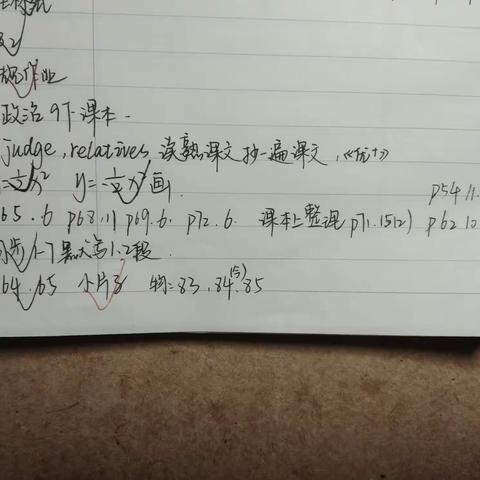 作业
政治 9下课本.
judge, relatives, 读熟课文 抄一遍课文,《优+》
y=-½x² 画.
p54.11.
65.6 p68.11 p69.6. p72.6. 课本上整理 p71.15(2) p62 10
步1-7 默写1.2段.
64.65 小片子 物:83.84.85